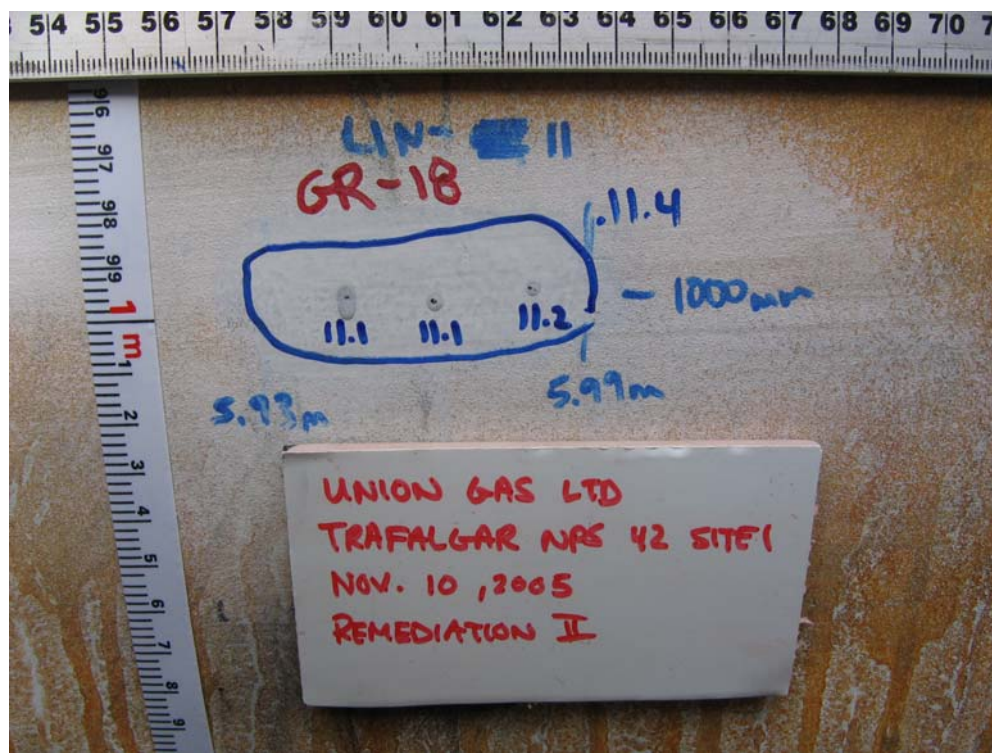 54 55 56 57 58 59 60 61 62 63 64 65 66 67 68 69 70
96
97
98
99
1
m
1
2
3
4
5
6
7
8
9
LIN- 11
GR-18
.11.4
- 1000mm
11.1 11.1 11.2
5.93m 5.99m
UNION GAS LTD
TRAFALGAR NPS 42 SITE1
NOV. 10, 2005
REMEDIATION II